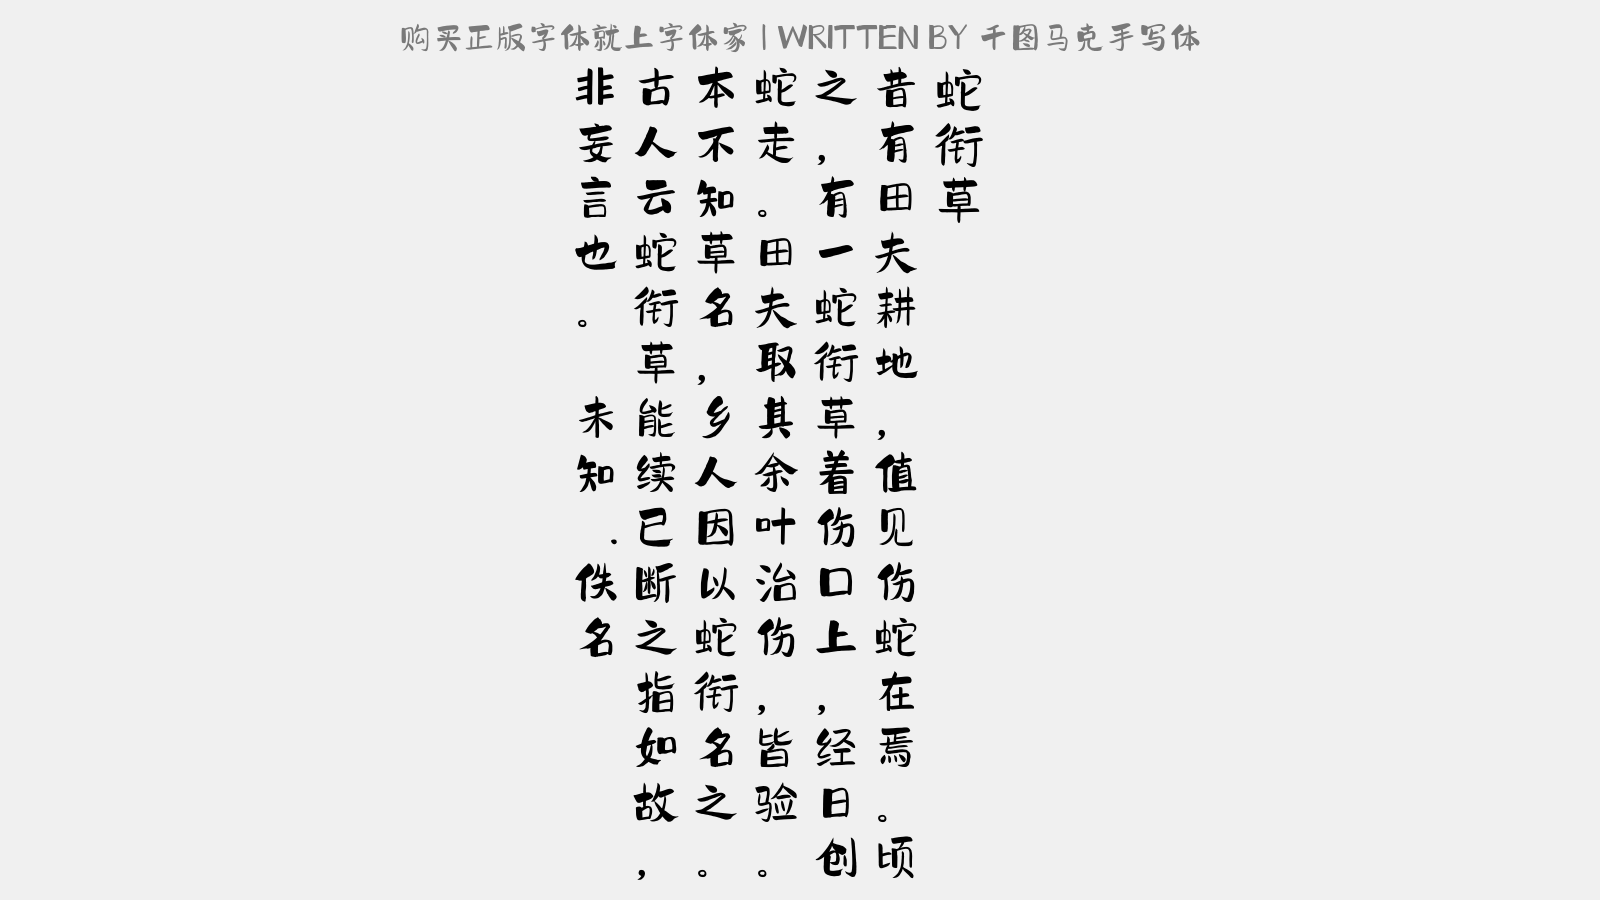 购买正版字体就上字体家 | WRITTEN BY 千图马克手写体
蛇衔草
昔有田夫耕地，值见伤蛇在焉。顷
之，有一蛇衔草着伤口上，经日创
蛇走。田夫取其余叶治伤，皆验。
本不知草名，乡人因以蛇衔名之。
古人云蛇衔草能续已断之指如故，
非妄言也。 未知.佚名